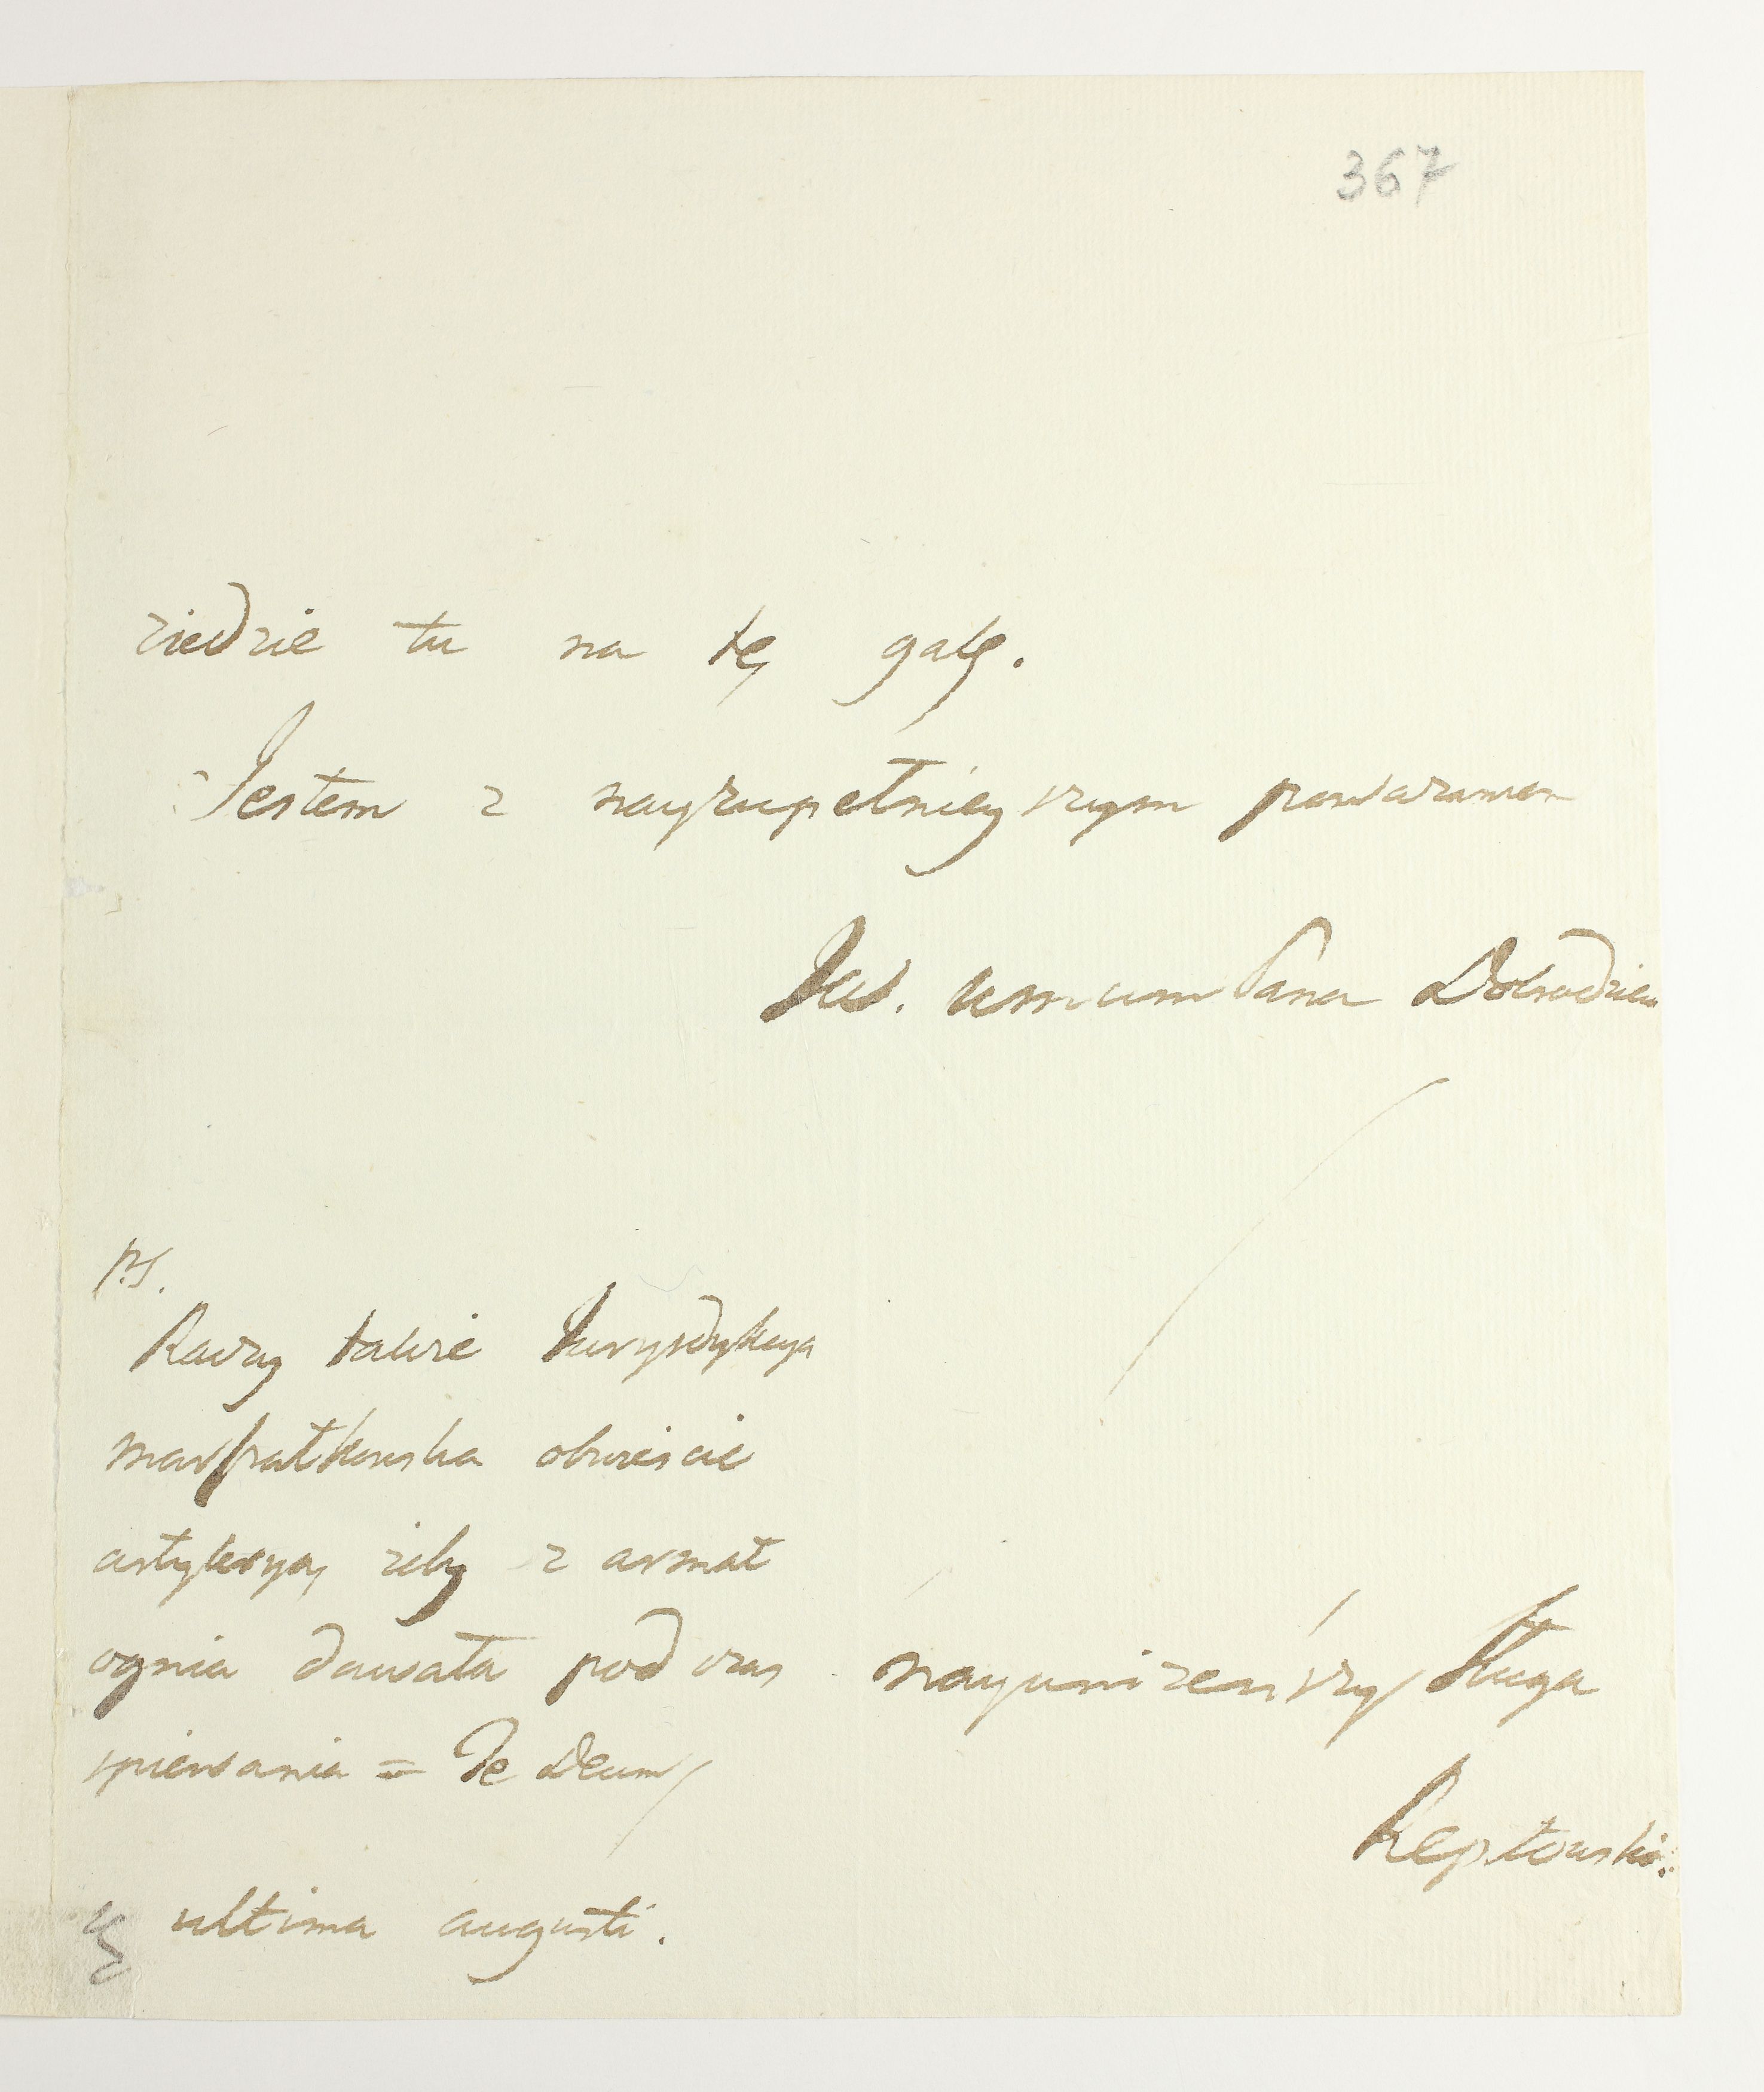 367
ziedzie tu na tę galę.
Jestem z nayzupełnieyszym poważaniem
JW. WmWm Pana Dobrodzieia
PS.
Raczy także Juryzdykcya
marszałkowska obwieścić
artyleryą, żeby z armat
ognia dawała podczas
spiewania = Te Deum
nayuniżeńszy sługa
Reptowski.
ultima augusti.